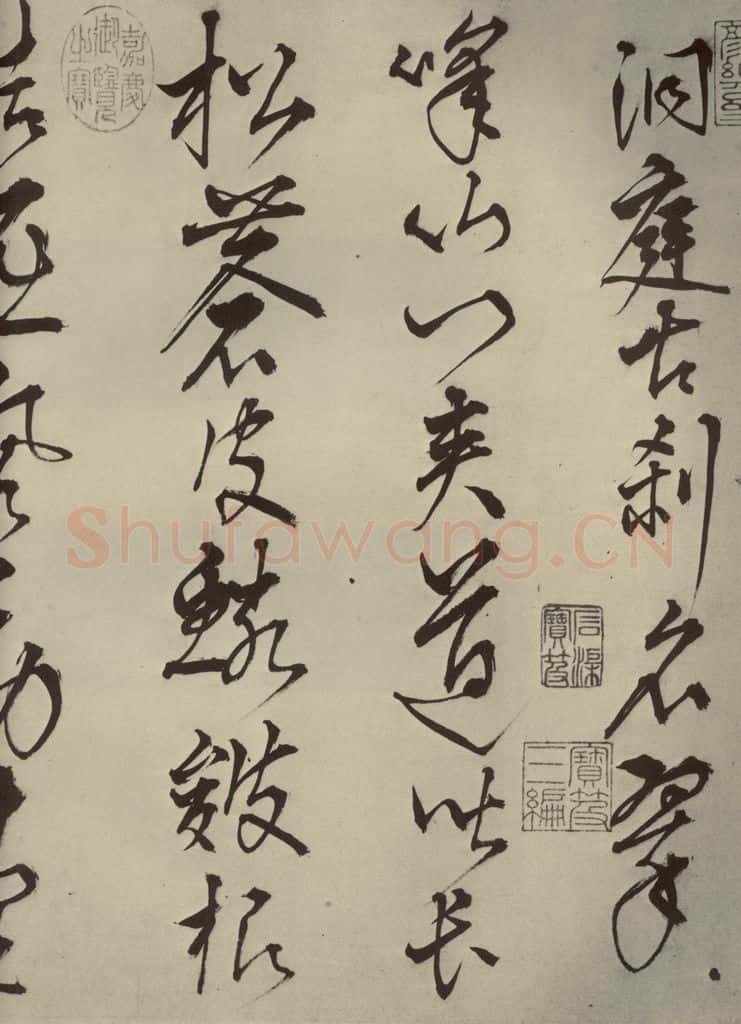 洞庭古刹名翠
峯山门夾道皆长
松蒼皮鱗皴根
嘉慶御覽之寶
石渠寶笈
寶笈三編
Shufawang.CN